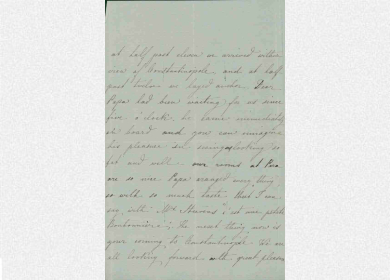 at half past eleven we arrived within
view of Constantinople and at half
past twelve we layed anchor. Dear
Papa had been waiting for us since
five o'clock, he came immediately
on board and you can immagine
his pleasure in seeing us looking so
fat and well. our rooms at Pera
are so nice Papa arranged every thing
so with so much taste that I can
say with Mrs
"c'est une petite
The next thing now is
your coming to Constantinople. We are
all looking forward with great pleasure